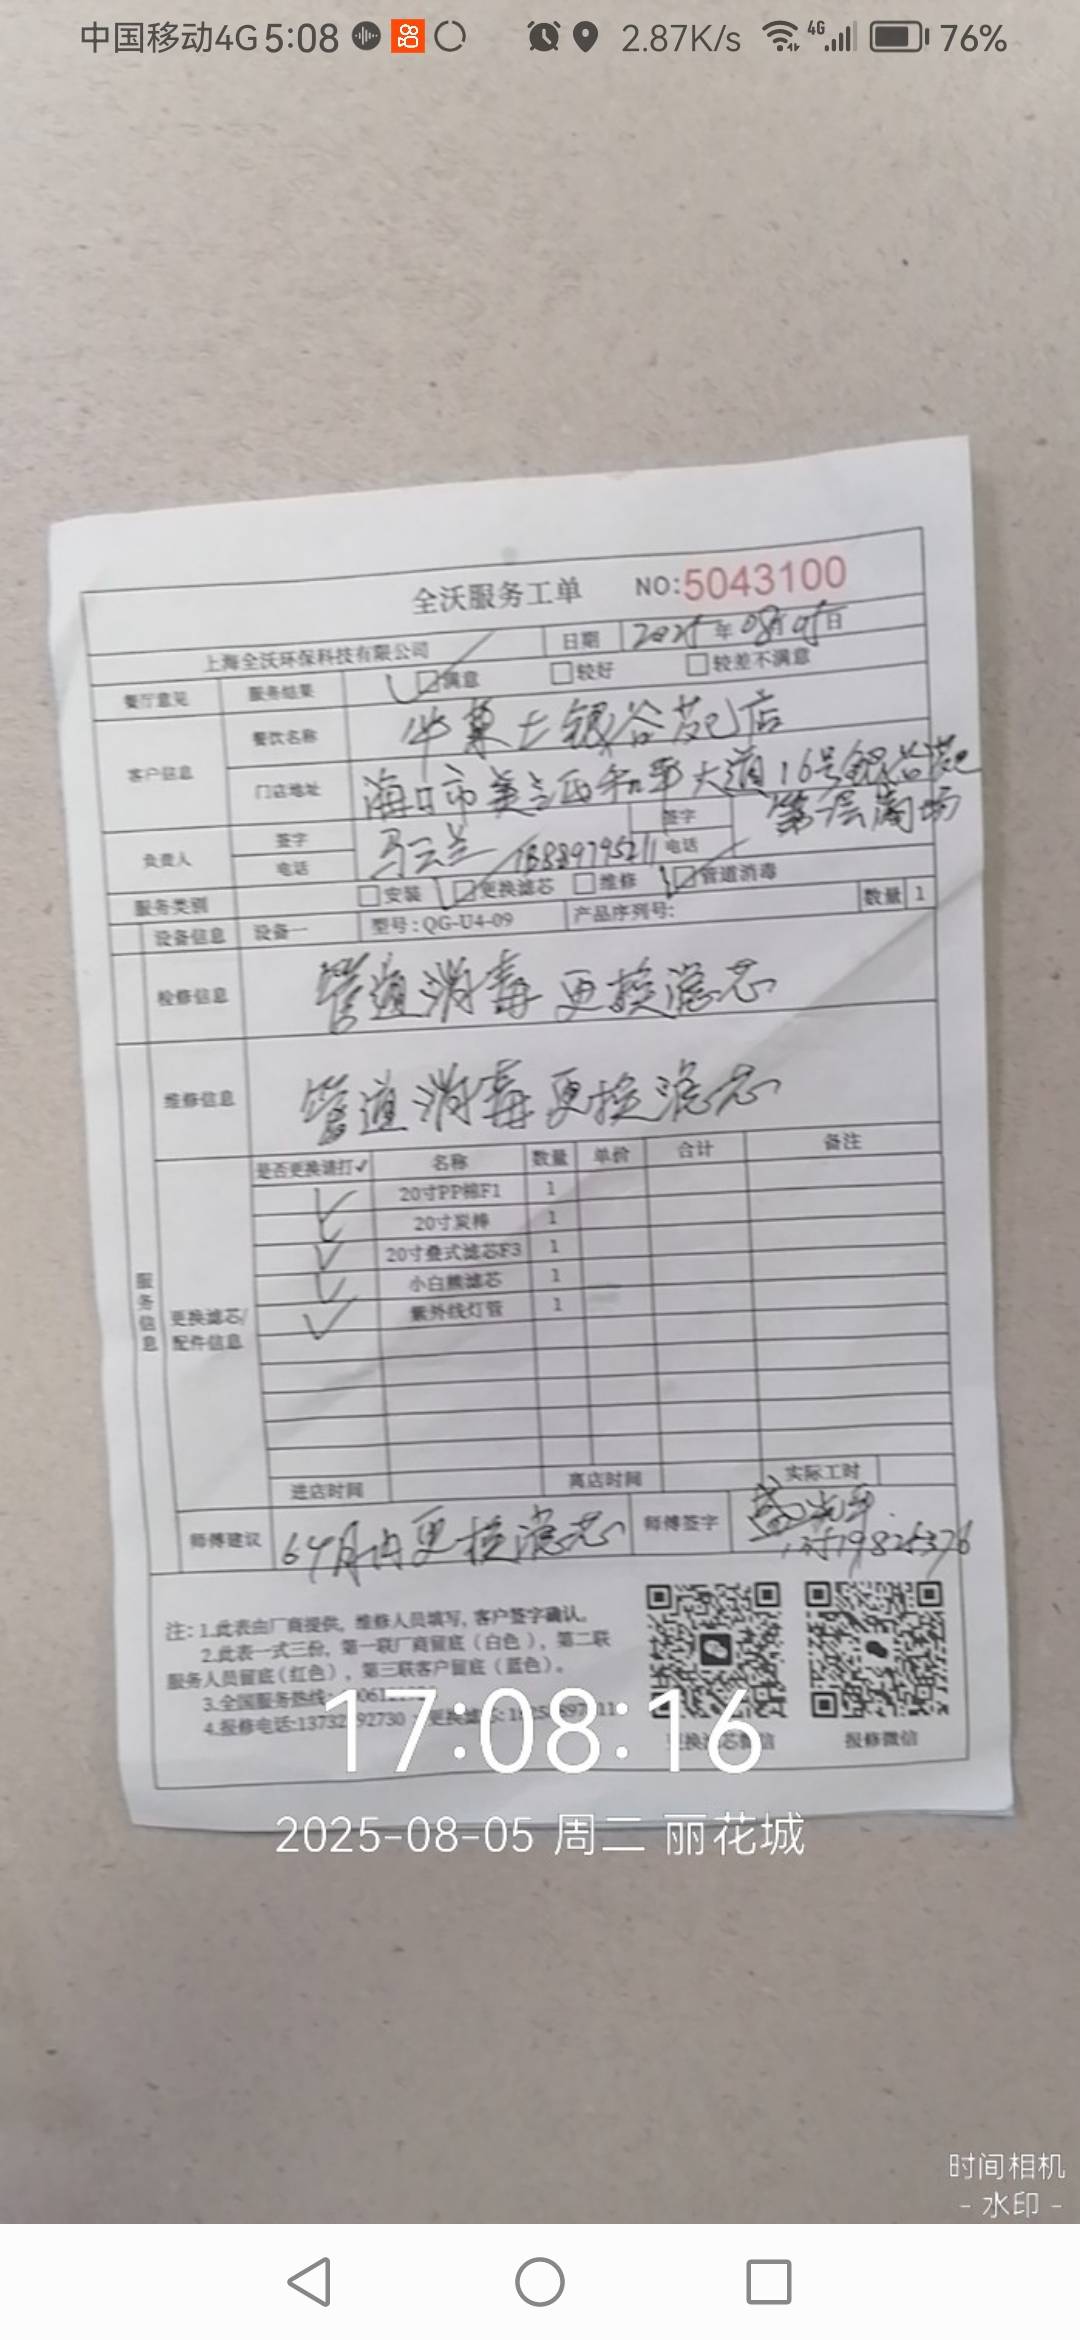 中国移动4G 5:08 2.87K/s 4G 76%
全沃服务工单 NO:5043100
上海全沃环保科技有限公司 日期 2025年08月05日
餐厅意见 服务结果 满意 较好 较差不满意
客户信息 餐饮名称 银谷苑店
门店地址 海口市美兰区和平大道16号银谷苑
第一层商场
负责人 签字 马云兰 签字
电话 18889795211 电话
服务类别 安装 更换滤芯 维修 管道消毒
设备信息 设备一 型号:QG-U4-09 产品序列号: 数量 1
检修信息 管道消毒 更换滤芯
维修信息 管道消毒更换滤芯
服务信息
更换滤芯/配件信息
是否更换请打✓ 名称 数量 单价 合计 备注
✓ 20寸PP棉F1 1
✓ 20寸炭棒 1
✓ 20寸叠式滤芯F3 1
✓ 小白熊滤芯 1
✓ 紫外线灯管 1
进店时间 离店时间 实际工时
师傅建议 6个月内更换滤芯 师傅签字
注: 1.此表由厂商提供, 维修人员填写, 客户签字确认。
2.此表一式三份, 第一联厂商留底（白色）, 第二联
服务人员留底（红色）, 第三联客户留底（蓝色）。
3.全国服务热线:
4.报修电话: 更换滤芯:
更换滤芯微信 报修微信
17:08:16
2025-08-05 周二 丽花城
时间相机
- 水印 -